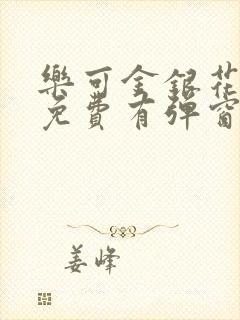 樂可金銀花
免費有彈窗
姜峰